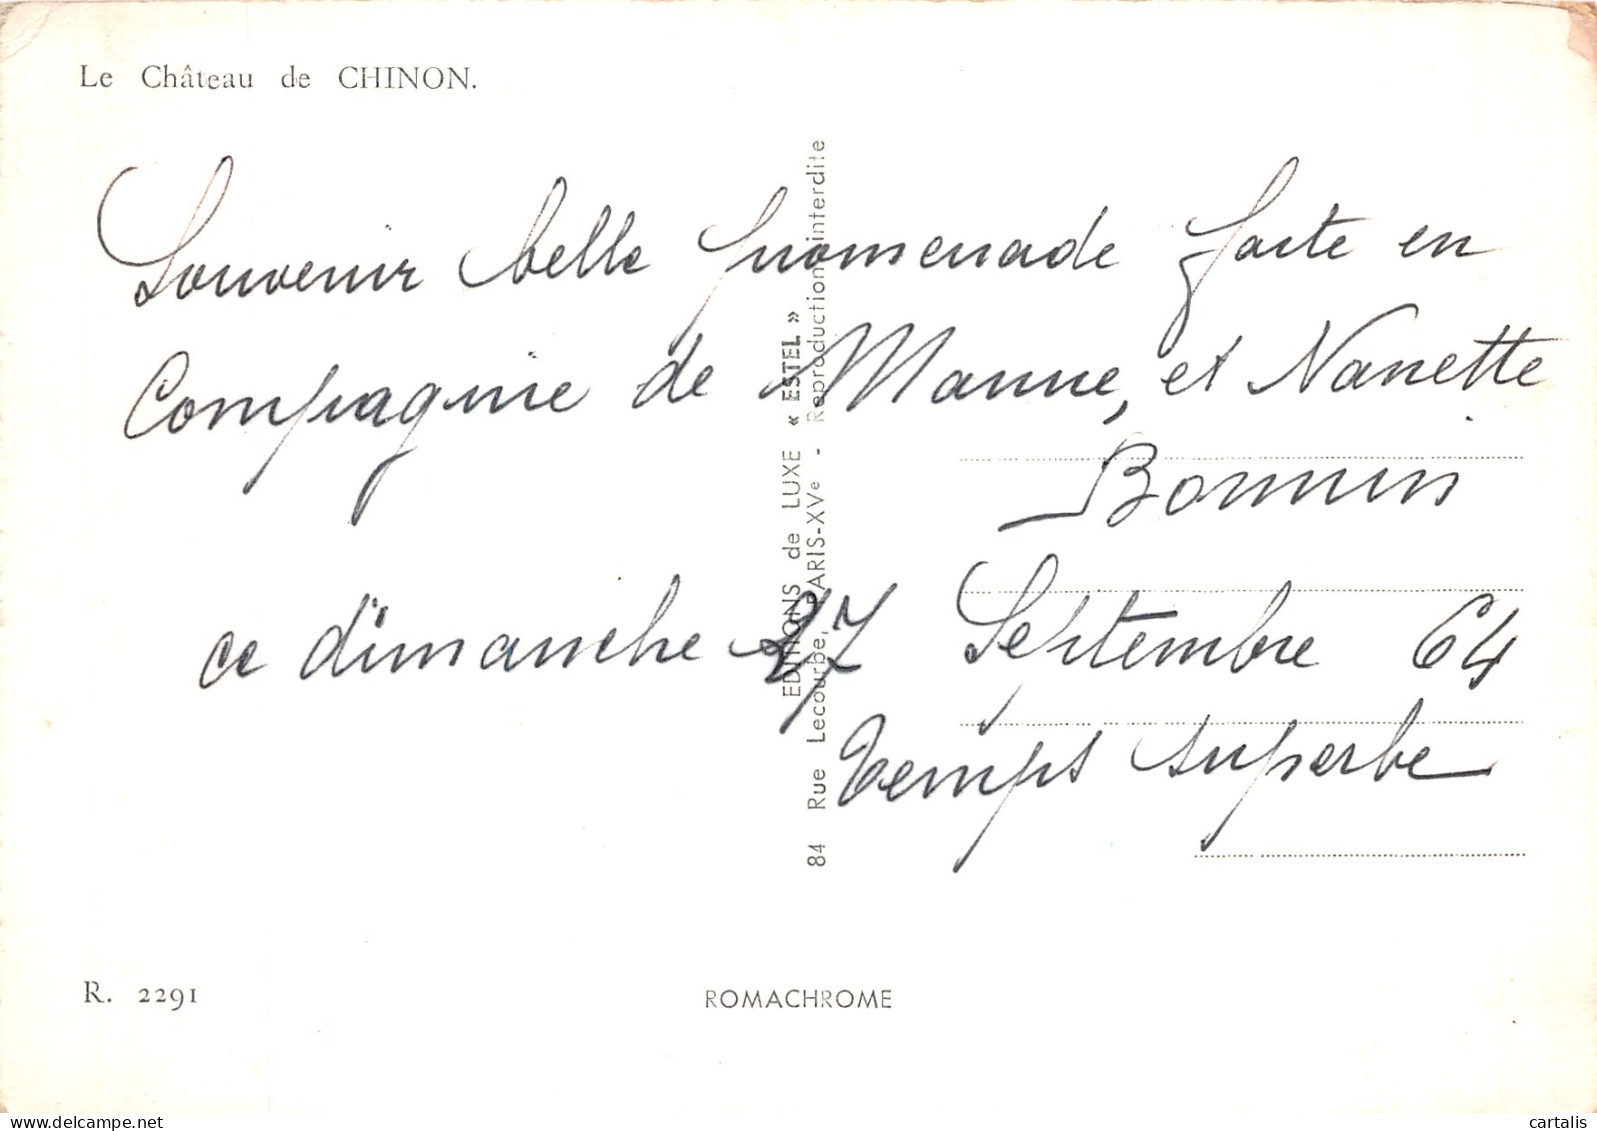 Le Château de CHINON.
Souvenir belle promenade faite en
Compagnie de Manne, et Nanette
Bonnin
ce dimanche 27 Septembre 64
Temps superbe
EDITIONS de LUXE « ESTEL »
84 Rue Lecourbe, PARIS-XVe - Reproduction interdite
R. 2291
ROMACHROME
cartalis